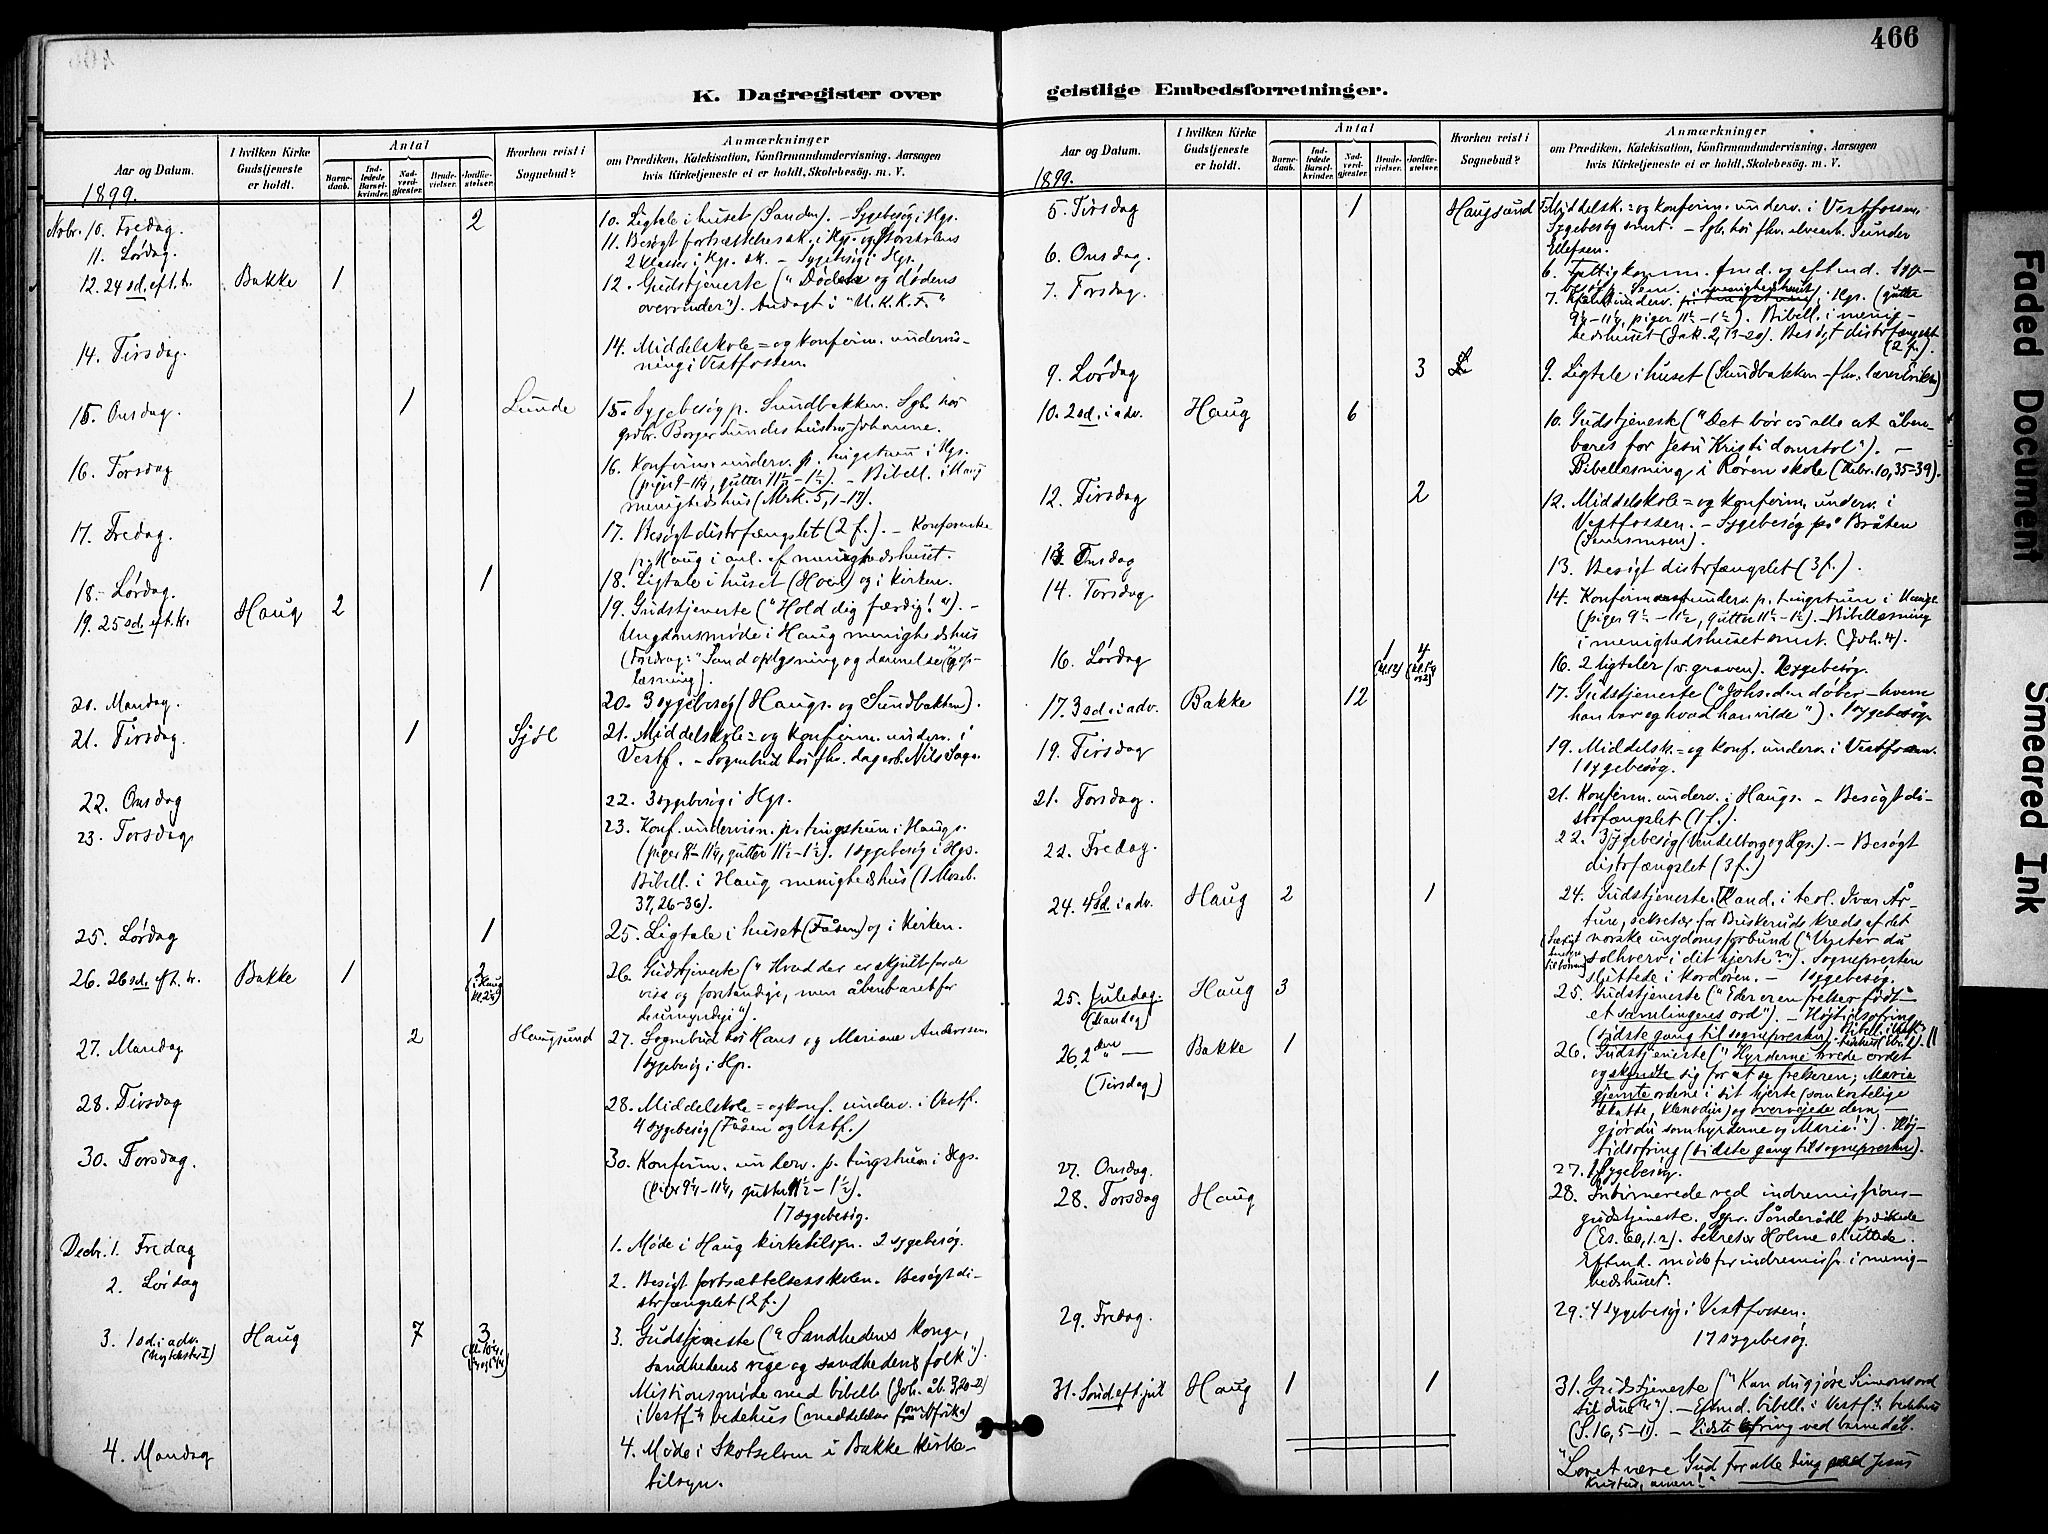 466
K. Dagregister over
geistlige Embedsforretninger.
Aar og Datum.
I hvilken Kirke Gudstjeneste er holdt.
Antal
Barne-daab.
Ind-ledede Barsel-kvinder.
Nad-verd-gjæster.
Brude-vielser.
Jordfæ-stelser.
Hvorhen reist i Sognebud?
Anmærkninger
om Prædiken, Katekisation, Konfirmandundervisning. Aarsagen
hvis Kirketjeneste ei er holdt, Skolebesøg. m. V.
1899.
Novbr. 10. Fredag. 2 10. Ligtale i huset (Sanden). – Sygebesög i Hgs.
11. Lørdag. 11. Besögt fortsættelsessk. i Hgs. og Storskolens
2 klasser i Hgs. sk. – Sygebesög i Hgs.
12. 24 sd. eft. tr. Bakke 1 12. Gudstjeneste ("Döden og dödens
overvinder"). Andagt i "U.K.K.F."
14. Tirsdag. 14. Middelskole= og konfirm. undervis-
ning i Vestfossen.
15. Onsdag. 1 Lunde 15. Sygebesög p. Sundbakken. Sgb. hos
grdbr. Borger Lundes hustru Johanne.
16. Torsdag 16. Konfirm. underv. p. tingstuen i Hgs.
(piger 9–11¼, gutter 11½–1½). – Bibell. i Haug
menighedshus (Mrk. 5, 1–17).
17. Fredag. 17. Besögt distrfængslet (2 f.). – Konference
p. Haug i anl. af menighedshuset.
18. Lørdag. 1 18. Ligtale i huset (Hoen) og i kirken.
19. 25 sd. eft. tr. Haug 2 19. Gudstjeneste ("Hold dig færdig!"). –
Ungdomsmöde i Haug menighedshus
(Foredrag: "Sand oplysning og dannelse" og op-
læsning).
20. Mandag. 20. 3 sygebesög (Haugs. og Sundbakken).
21. Tirsdag. 1 Sjöl 21. Middelskole= og konfirm. underv. i
Vestf. – Sognebud hos fhv. dagarb. Nils
22. Onsdag 22. 3 sygebesög i Hgs.
23. Torsdag 23. Konf. undervisn. p. tingstuen i Haugs.
(piger 9–11¼, gutter 11½–1½). 1 sygebesög i Hgs.
Bibell. i Haug menighedshus (1 Moseb.
37, 26–36).
25. Lørdag 1 25. Ligtale i huset (Fåsen) og i kirken.
26. 26 sd. eft. tr. Bakke 1 2 (i Haug 26. Gudstjeneste ("Hvad der er skjult for de
vise og forstandige, men åbenbaret for
de umyndige").
27. Mandag 2 Haugsund 27. Sognebud hos Hans og Mariane Anderssen.
1 sygebesög i Hgs.
28. Tirsdag 28. Middelskole= og konf. underv. i Vestf.
4 sygebesög (Fåsen og Vestf.)
30. Torsdag. 30. Konfirm. underv. p. tingstuen i Hgs.
(piger 9¼–11¼, gutter 11½–1½).
17 sygebesög.
Decbr. 1. Fredag 1. Møde i Haug kirketilsyn. 2 sygebesög.
2. Lørdag 2. Besögt fortsættelsesskolen. Besögt di-
strfængslet (2 f.)
3. 1 sd. i adv. Haug 7 3. 3. Gudstjeneste ("Sandhedens konge,
sandhedens rige og sandhedens folk").
Missionsmöde med bibell. (Joh. åb. 3,
i Vestf. bedehus (meddelelser om Afrika)
4. Mandag 4. Møde i Skotselven i Bakke kirke-
tilsyn.
1899.
5. Tirsdag 1 Haugsund 5. Middelsk.= og konfirm. underv. i Vestfossen.
Sygebesög smst. – Sgb. hos fhv. elvearb. Gunder
Ellefsen.
6. Onsdag. 6. Fattigkomm. fmd. og eftmd.
7. Torsdag. 7. Konf. underv. i menighedshuset i Hgs. (gutter
9¼–11¼, piger 11½–1½). Bibell. i menig-
hedshuset (Jak. 2, 13–20). Besögt distrfængslet
(2 f.).
9. Lørdag 3 9. Ligtale i huset (Sundbakken – fhv. lærer
10. 2 sd. i adv. Haug 6 10. Gudstjeneste ("Det bör os alle at åben-
bares for Jesu Kristi domstol"). –
Bibellæsning i Rören skole (Hebr. 10, 35–39).
12. Tirsdag 2 12. Middelskole= og konfirm. underv. i
Vestfossen. – Sygebesög på Bråten
13. Onsdag 13. Besögt distrfængslet (3 f.).
14. Torsdag 14. Konfirm. underv. p. tingstuen i Haugs.
(piger 9½–11½, gutter 11½–1½). Bibellæsning
i menighedshuset smst. (Joh. 4).
16. Lørdag 1 4 16. 2 ligtaler (v. graven). 2 sygebesög.
17. 3 sd. i adv. Bakke 12 17. Gudstjeneste ("Johs. den döber – hvem
han var og hvad han vilde"). 1 sygebesög.
19. Tirsdag 19. Middelsk.= og konf. underv. i Vestfossen.
1 sygebesög.
21. Torsdag. 21. Konfirm. underv. i Haugs. – Besögt di-
strfængslet (1 f.).
22. Fredag. 22. 3 sygebesög (Vendelborg og Hgs.). – Besögt
distrfængslet (3 f.)
24. 4 sd. i adv. Haug 2 1 24. Gudstjeneste. Kand. i teol. Ivar År-
sekretær for Buskeruds kreds af det
norske ungdomsforbund ("Venter du
solhverv i dit hjerte?"). Sognepresten
sluttede i kordören. – 1 sygebesög.
25. Juledag. (Mandag) Haug 3 25. Gudstjeneste ("Eder er en frelser födt"
et samlingens ord"). – Höjtidsofring
(sidste gang til sognepresten).
26. 2den " — (Tirsdag) Bakke 1 26. Gudstjeneste ("Hyrderne troede ordet
og skyndte sig for at se frelseren; Maria
gjemte ordene i sit hjerte (som kostelige
skatte, klenodier) og overvejede dem, –
gjör du som hyrderne og Maria!"). Höj-
tidsofring (sidste gang til sognepresten).
27. Onsdag. 27. 1 sygebesög.
28. Torsdag Haug 28. Intimerede ved indremissions-
gudstjeneste. Sgpr. Sönderådl prædikede
(Es. 60, 1.2). Sekretær Holme sluttede.
Eftmd. möde for indremiss. i menig-
hedshuset.
29. Fredag. 29. 4 sygebesög i Vestfossen.
17 sygebesög.
31. Sönd. eft. jul Haug 1 1 31. Gudstjeneste ("Kan du gjöre Simeons ord
til dine?"). – Eftmd. bibell. i Vestf. bedehus
(S. 16, 5–11). – Sidste ofring ved barnedåb.
"Lovet være Gud for alle ting ved Jesus
Kristus, amen!"
Faded Document
Smeared Ink